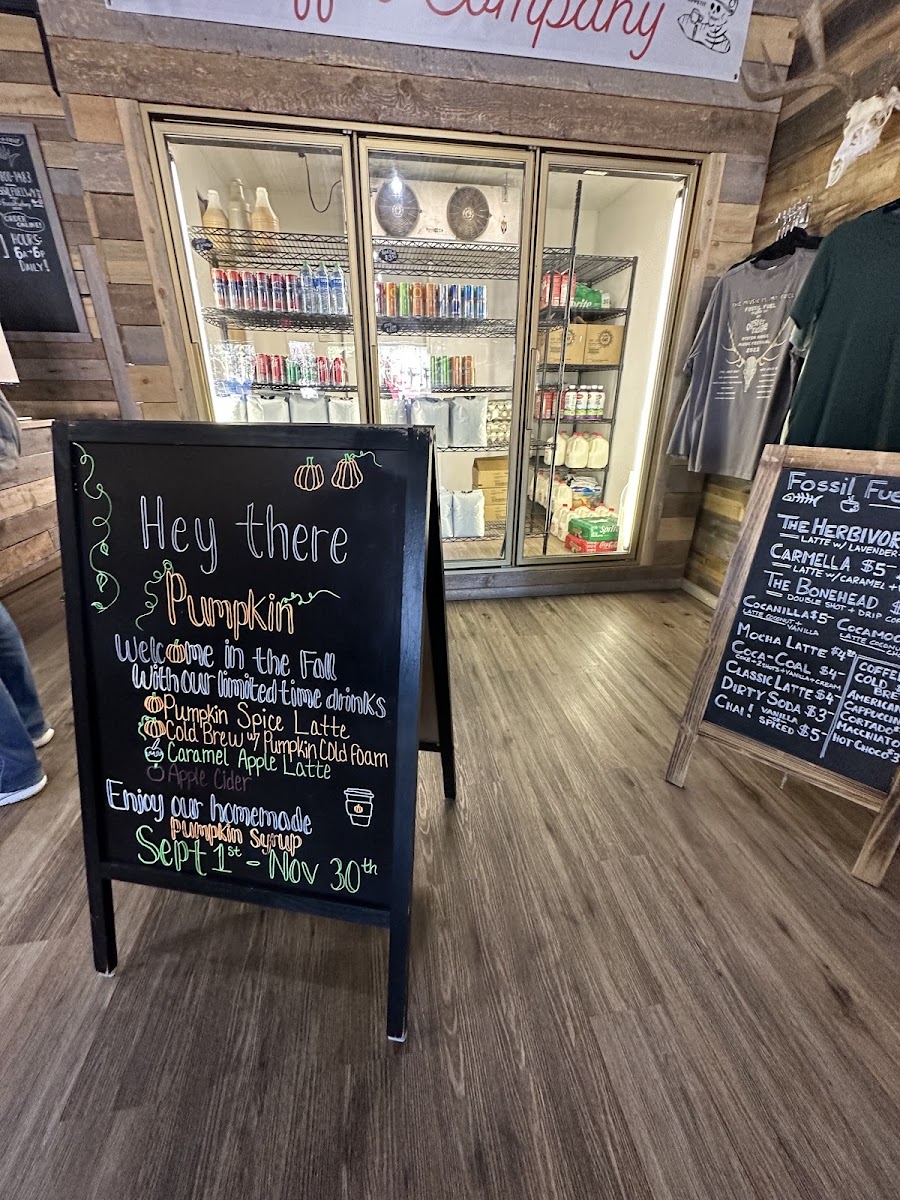 Company
801-1483
ORDER
ONLINE!
HOURS:
6A-6P
DAILY!
Hey there
Pumpkin
Welcome in the Fall
with our limited time drinks
Pumpkin Spice Latte
Cold Brew w/ Pumpkin Cold Foam
Caramel Apple Latte
Apple Cider
Enjoy our homemade
pumpkin syrup
Sept 1st - Nov 30th
THE MUSIC IS MY FUEL
FOSSIL FUEL
Sprite
FOSSIL FUE
THE HERBIVOR
LATTE W/ LAVENDER
CARMELLA $5
LATTE W/CARAMEL +
THE BONEHEAD
DOUBLE SHOT + DRIP COF
COCANILLA $5
LATTE COCONUT +
VANILLA
COCAMOC
LATTE COCONU
MOCHA LATTE
COCA-COAL $4
COKE + 2 SHOTS + VANILLA + CREAM
CLASSIC LATTE $4
DIRTY SODA $3
CHAI! VANILLA
SPICED $5
COFFEE
COLD
BRE
AMERICAN
CAPPUCCIN
CORTADO
MACCHIATO
HOT CHOCO $3